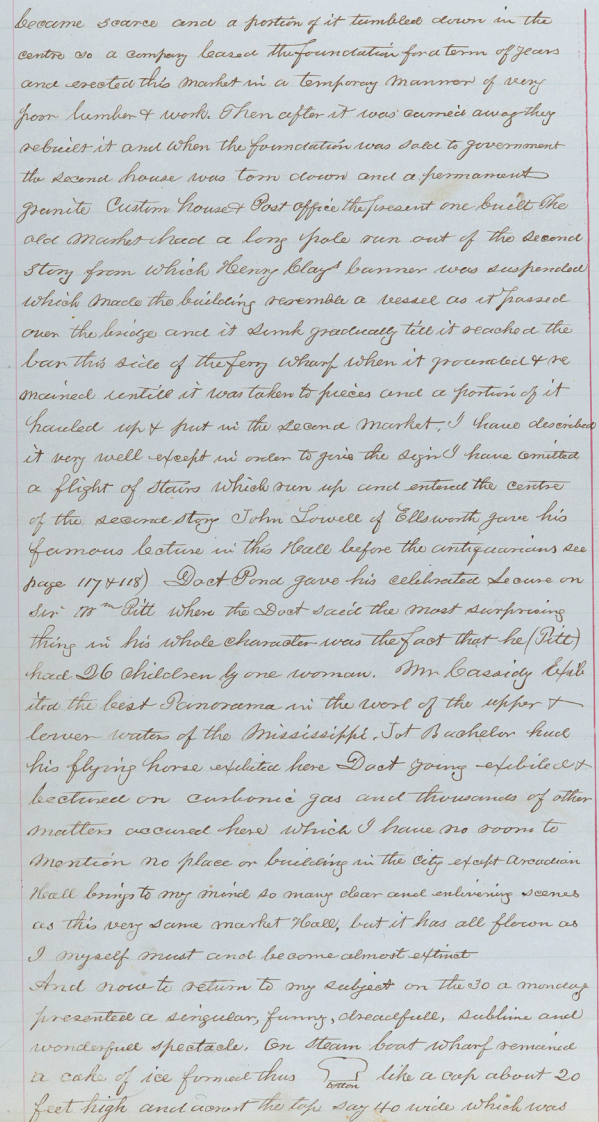 became scarce and a portion of it tumbled down in the
centre so a company leased the foundation for a term of years
and erected this market in a temporay manner of very
poor lumber & work. Then after it was carried away they
rebuilt it and when the foundation was sold to government
the second house was torn down and a permanant
granite Custom house & Post office the present one built The
old Market had a long pole run out of the second
Story from which Henry Clays banner was suspended
which made the building resemble a vessel as it passed
over the bridge and it sunk gradually till it reached the
bar this side of the ferry wharf when it grounded & re
mained untill it was taken to pieces and a portion of it
hauled up & put in the second market. I have described
it very well except in order to give the sign I have omitted
a flight of stairs which run up and entered the centre
of the second story John Lowell of Ellsworth gave his
famous lecture in this Hall before the antiquarians see
page 117 & 118) Doct Pond gave his celebrated Lecure on
Sir Wm Pitt where the Doct said the most surprising
thing in his whole character was the fact that he (Pitt)
had 26 children by one woman. Mr Cassidy Exib
ited the best Panorama in the worl of the upper &
lower waters of the Mississippi. Jot Bachelor had
his flying horse exibited here Doct going exibiled &
lectured on carbonic gas and thousands of other
matters accured here which I have no room to
Mention no place or building in the city except arcadian
Hall brings to my mind so many dear and enlivening scenes
as this very same market Hall, but it has all flown as
I myself must and become almost extinct
And now to return to my subject on the 30 a monday
presented a singular, funny, dreadfull, sublime and
wonderfull spectacle. On steam boat wharf remained
a cake of ice formed thus like a cap about 20
feet high and acrost the top say 40 wide which was